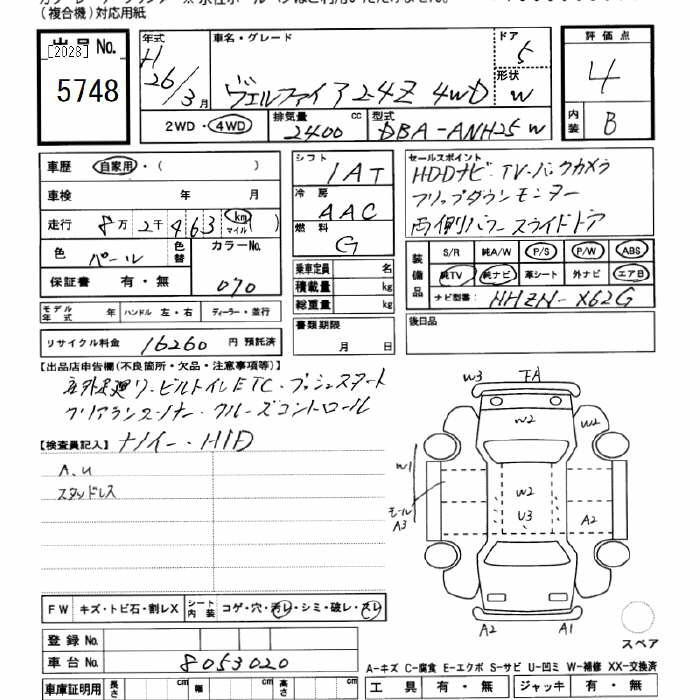 (複合機)対応用紙
出品No.
[2023]
5748
年式
H
26/3月
車名・グレード
ヴェルファイア 2.4Z 4WD
ドア
5
形状
W
2WD・4WD
排気量
2400
cc
型式
DBA-ANH25W
評価点
4
内装
B
車歴
自家用・( )
車検 年 月
走行
8万2千463
km
マイル
( )
色
パール
色替
カラーNo.
070
保証書 有・無
シフト
IAT
冷房
AAC
燃料
G
乗車定員 名
積載量 kg
総重量 kg
書類期限
月 日
セールスポイント
HDDナビ・TV・バックカメラ
フリップダウンモニター
両側パワースライドドア
装備品
S/R 純A/W P/S P/W ABS
純TV 純ナビ 革シート 外ナビ エアB
ナビ型番: NHZN-X62G
後日品
モデル年式 年 ハンドル 左・右 ディーラー・並行
リサイクル料金 16260 円 預託済
【出品店申告欄(不良箇所・欠品・注意事項等)】
ビルトインETC・プッシュスタート
クリアランスソナー・クルーズコントロール
【検査員記入】
HID
A.U
スタッドレス
FW キズ・トビ石・割レX
シート内装
コゲ・穴・汚レ・シミ・破レ・スレ
登録No.
車台No.
8053020
車庫証明用
長さ
cm
幅
cm
高さ
cm
W3
下A
W2
W2
W1
モール
A3
W2
U3
A2
A2
A1
スペア
A-キズ C-腐食 E-エクボ S-サビ U-凹ミ W-補修 XX-交換済
工具 有・無
ジャッキ 有・無